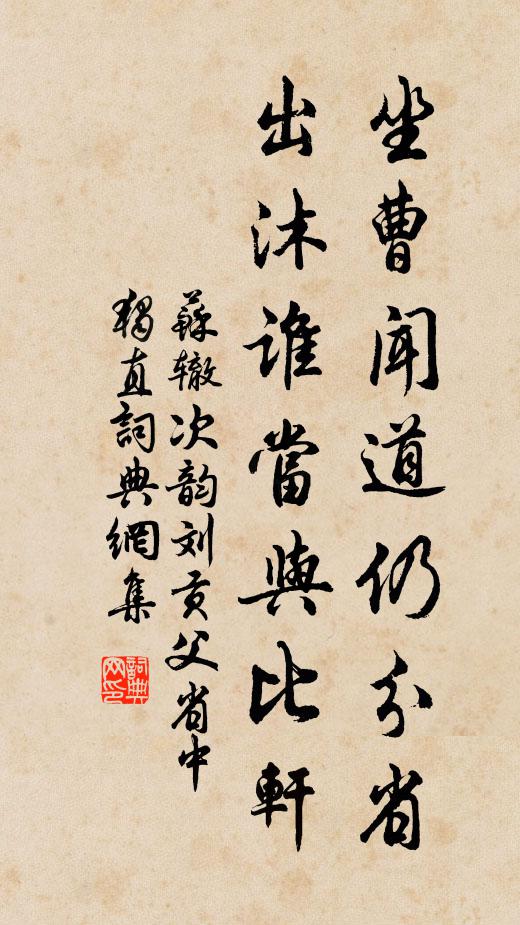 坐曹聞道仍分省
出沐誰當與比軒
蘇辙次韵刘贡父省中
独直詞典網集
詞典
网印